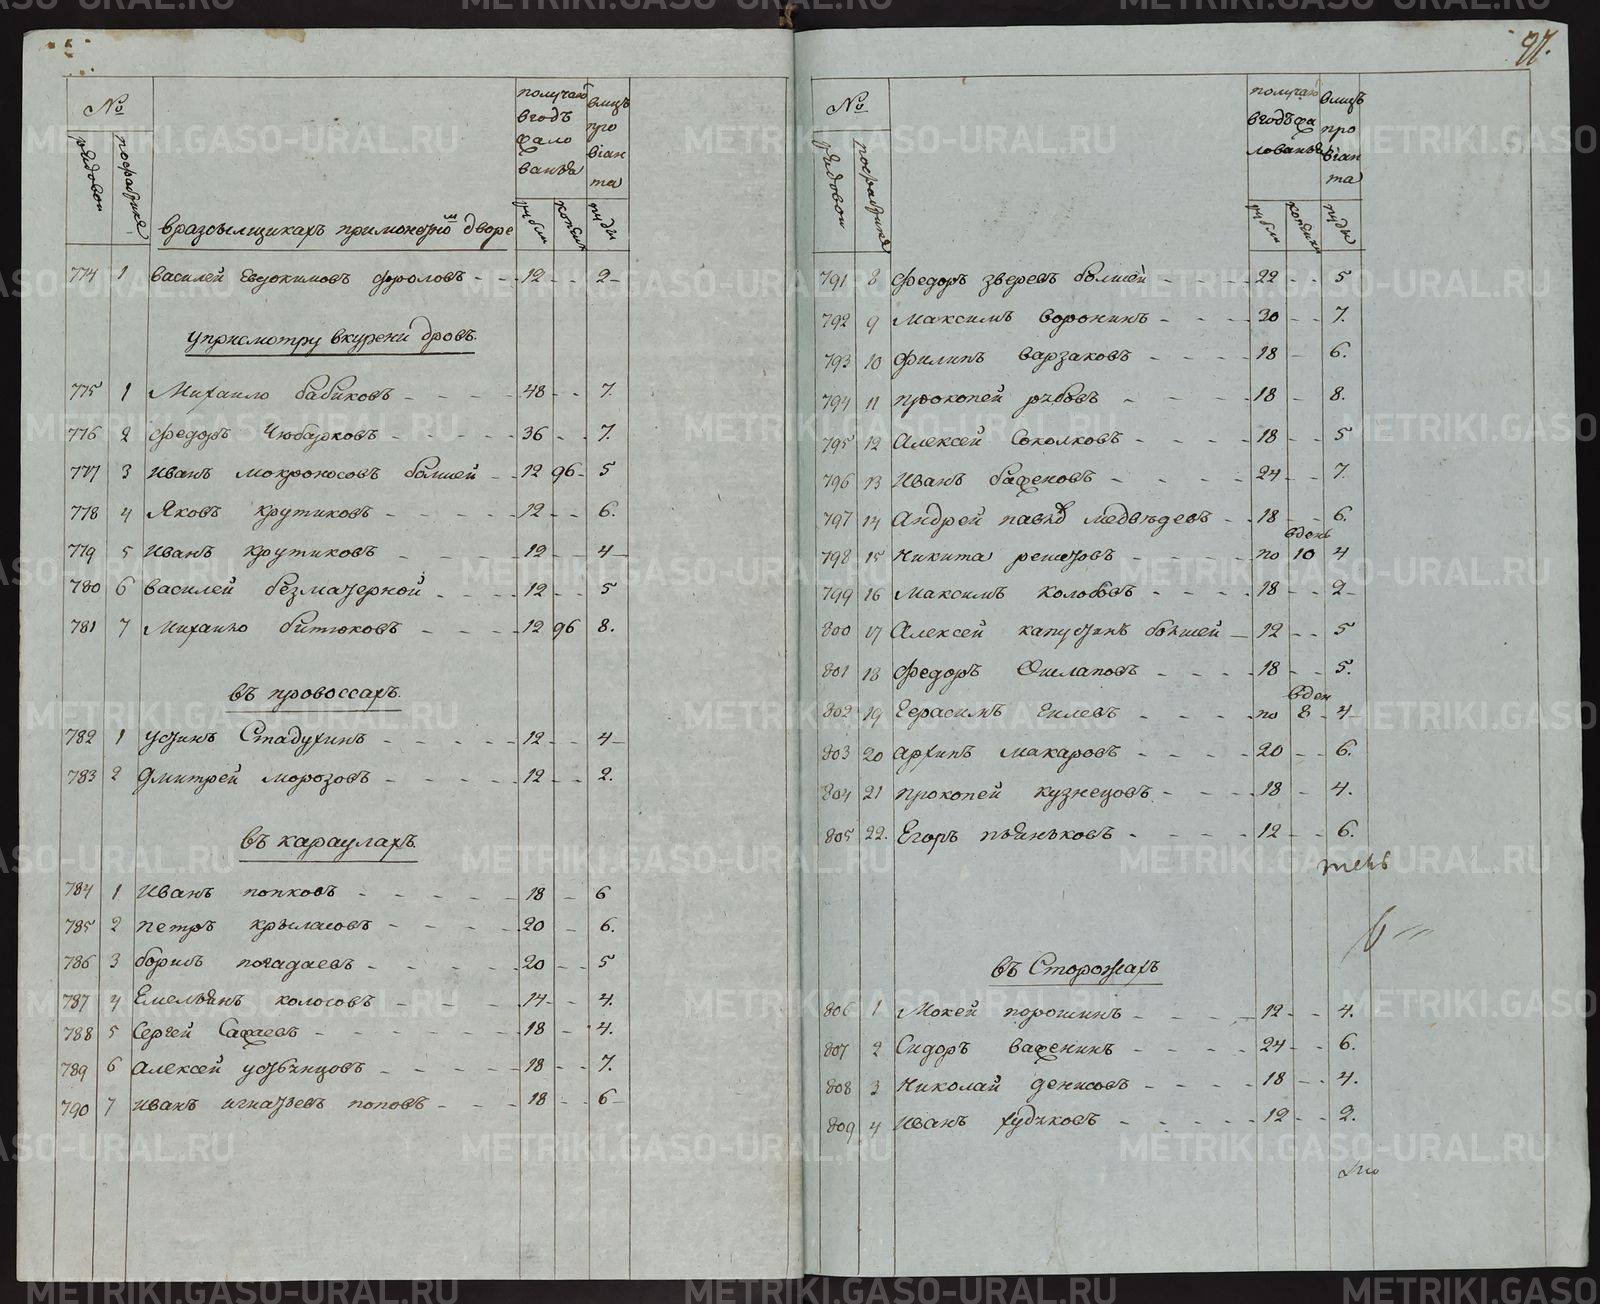 97.
№
рядовои
посрасписке
получаю вгодъ жало ванья
вмцъ про віан та
рубли
копеик
пуды
вразсылщикахъ примонетномъ дворе
774 1 василей Евдокимовъ фроловъ 12 2
уприсмотру вкурени дровъ.
775 1 Михаило бабиковъ 48 7.
776 2 федоръ Чюбарковъ 36 7.
777 3 иванъ мокроносовъ болшей 12 96 5
778 4 Яковъ крутиковъ 12 6.
779 5 иванъ крутиковъ 12 4
780 6 василей безматерной 12 5
781 7 Михаило битюковъ 12 96 8.
въ провоссахъ.
782 1 устинъ Стадухинъ 12 4
783 2 дмитрей морозовъ 12 2.
въ караулахъ.
784 1 иванъ попковъ 18 6
785 2 петръ крыласовъ 20 6.
786 3 борисъ погадаевъ 20 5
787 4 Емельянъ колосовъ 14 4.
788 5 Сергей Сажаевъ 18 4.
789 6 алексей устьянцовъ 18 7.
790 7 иванъ игнатьевъ поповъ 18 6
№
рядовои
получаю вгодъ жа лованья
вмцъ про віан та
рубли
копеики
пуды
791 8 федоръ зверевъ болшей 22 5
792 9 Максимъ воронинъ 30 7.
793 10 филипъ варзаковъ 18 6.
794 11 прокопей рябовъ 18 8.
795 12 алексей Соколковъ 18 5
796 13 иванъ баженовъ 24 7.
797 14 андрей павлов медвѣдевъ 18 6.
вдень
798 15 никита решетовъ по 10 4
799 16 Максимъ колобовъ 18 2
800 17 алексей капустинъ болшей 12 5
801 18 федоръ Ошлаповъ 18 5.
вден
802 19 Герасимъ Гилевъ по 8 4
803 20 архипъ макаровъ 20 6.
804 21 прокопей кузнецовъ 18 4.
805 22. Егоръ пьянковъ 12 6.
въ Сторожахъ
806 1 Мокей порошинъ 12 4.
807 2 Сидоръ важенинъ 24 6.
808 3 николай денисовъ 18 4.
809 4 иванъ худяковъ 12 2.
METRIKI.GASO-URAL.RU